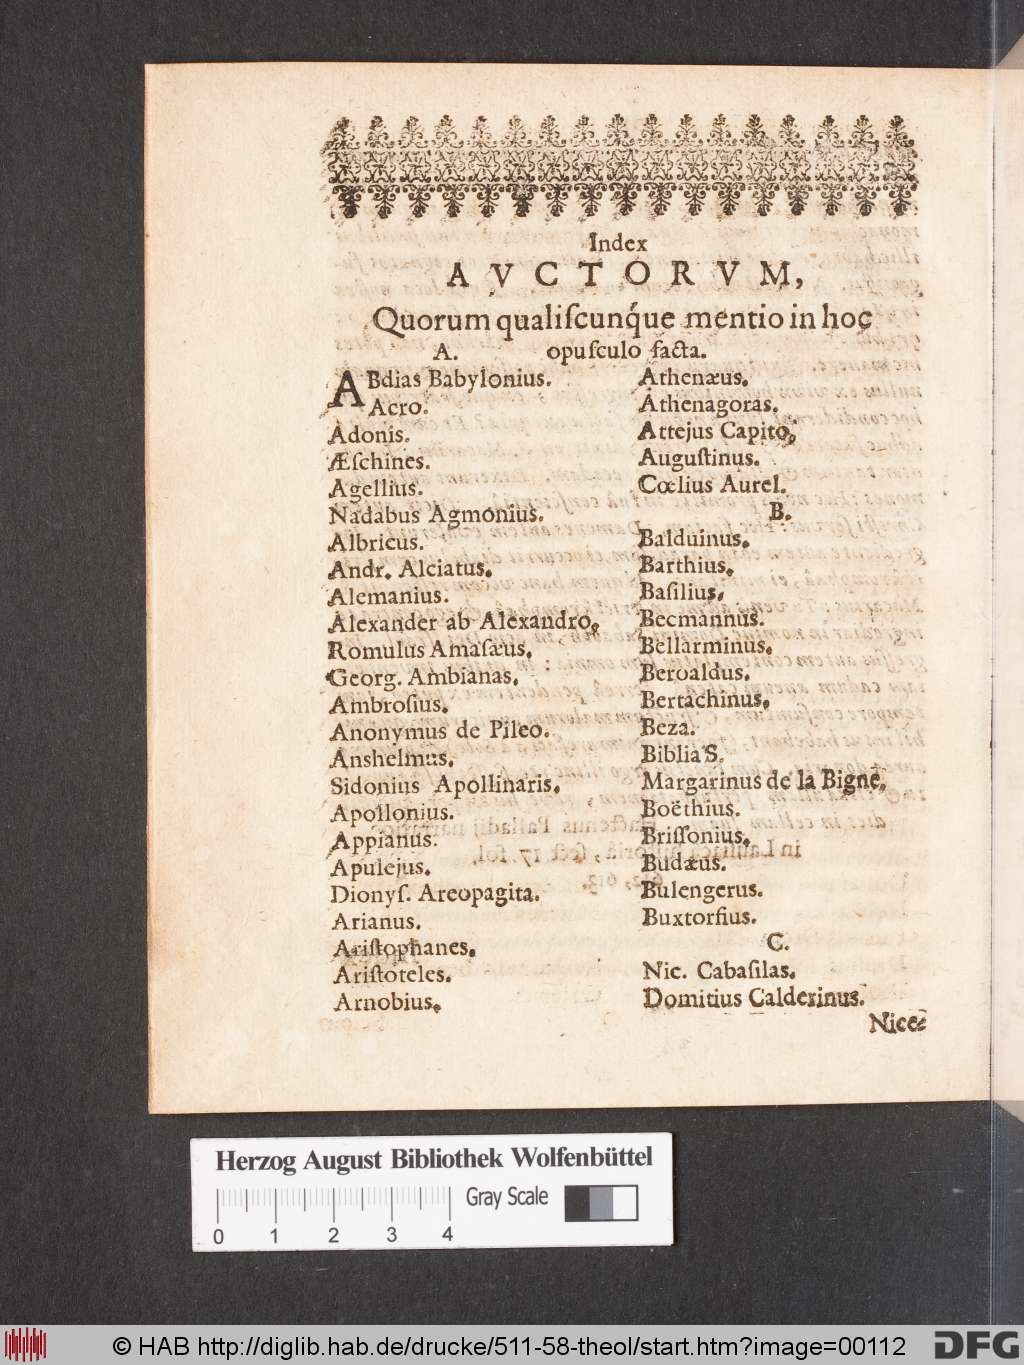 Index
AVCTORVM,
Quorum qualiſcunq́ue mentio in hoc
opuſculo facta.
A.
ABdias Babylonius.
Acro.
Adonis.
Æſchines.
Agellius.
Nadabus Agmonius.
Albricus.
Andr. Alciatus.
Alemanius.
Alexander ab Alexandro.
Romulus Amaſæus.
Georg. Ambianas.
Ambroſius.
Anonymus de Pileo.
Anshelmus.
Sidonius Apollinaris.
Apollonius.
Appianus.
Apulejus.
Dionyſ. Areopagita.
Arianus.
Ariſtophanes.
Ariſtoteles.
Arnobius.
Athenæus.
Athenagoras.
Attejus Capito.
Auguſtinus.
Cœlius Aurel.
B.
Balduinus.
Barthius.
Baſilius.
Becmannus.
Bellarminus.
Beroaldus.
Bertachinus.
Beza.
Biblia S.
Margarinus de la Bigne.
Boëthius.
Briſſonius.
Budæus.
Bulengerus.
Buxtorfius.
C.
Nic. Cabaſilas.
Domitius Calderinus.
Nice-
Herzog August Bibliothek Wolfenbüttel
Gray Scale
0 1 2 3 4
© HAB http://diglib.hab.de/drucke/511-58-theol/start.htm?image=00112
DFG